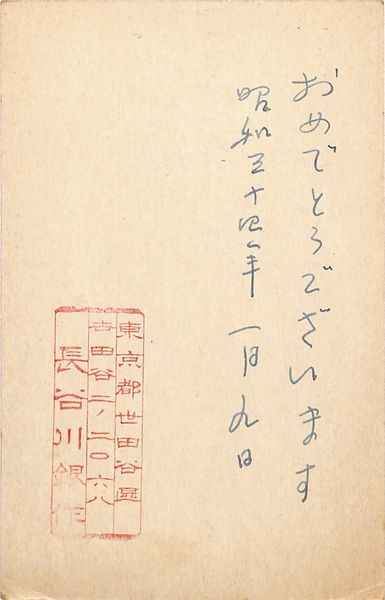 おめでとうございます
昭和三十四年 一月九日
東京都世田谷區
世田谷二ノ二〇六八
長谷川銀作